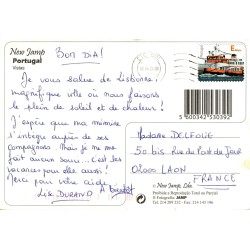 New Jamp
Portugal
Vistas
BOM DIA!
Je vous salue de Lisbonne,
magnifique ville où nous faisons
le plein de soleil et de chaleur!
J'espère que ma mimise
s'intègre auprès de ses
compagnes. Mais je ne me
fait aucun souci... C'est ses
vacances pour elle aussi!
Merci pour votre aide.
Lise DURAND A bientôt
5 600342 530392
Madame DELFOLIE
50 bis Rue du Pont de
02000 LAON
FRANCE
New Jamp, Lda.
Proibida a Reprodução Total ou Parcial
© Fotografia: JAMP